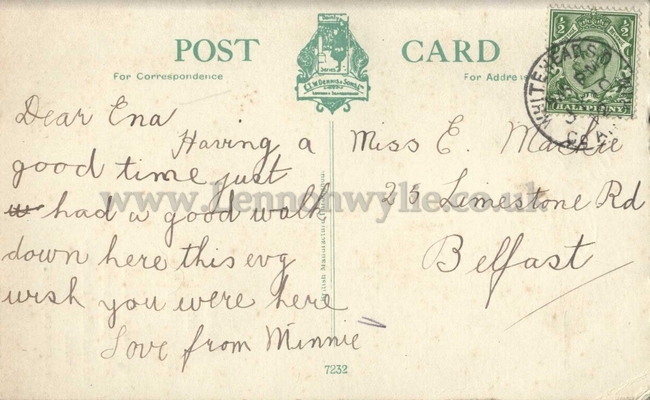 POST CARD
For Correspondence
For Address
Dear Ena
Having a
good time just
had a good walk
down here this evg
wish you were here
Love from Minnie
Miss E. Mackie
25 Limestone Rd
Belfast
½ ½
HALFPENNY
WHITEHEAD
www.Lennonwylie.co.uk
7232